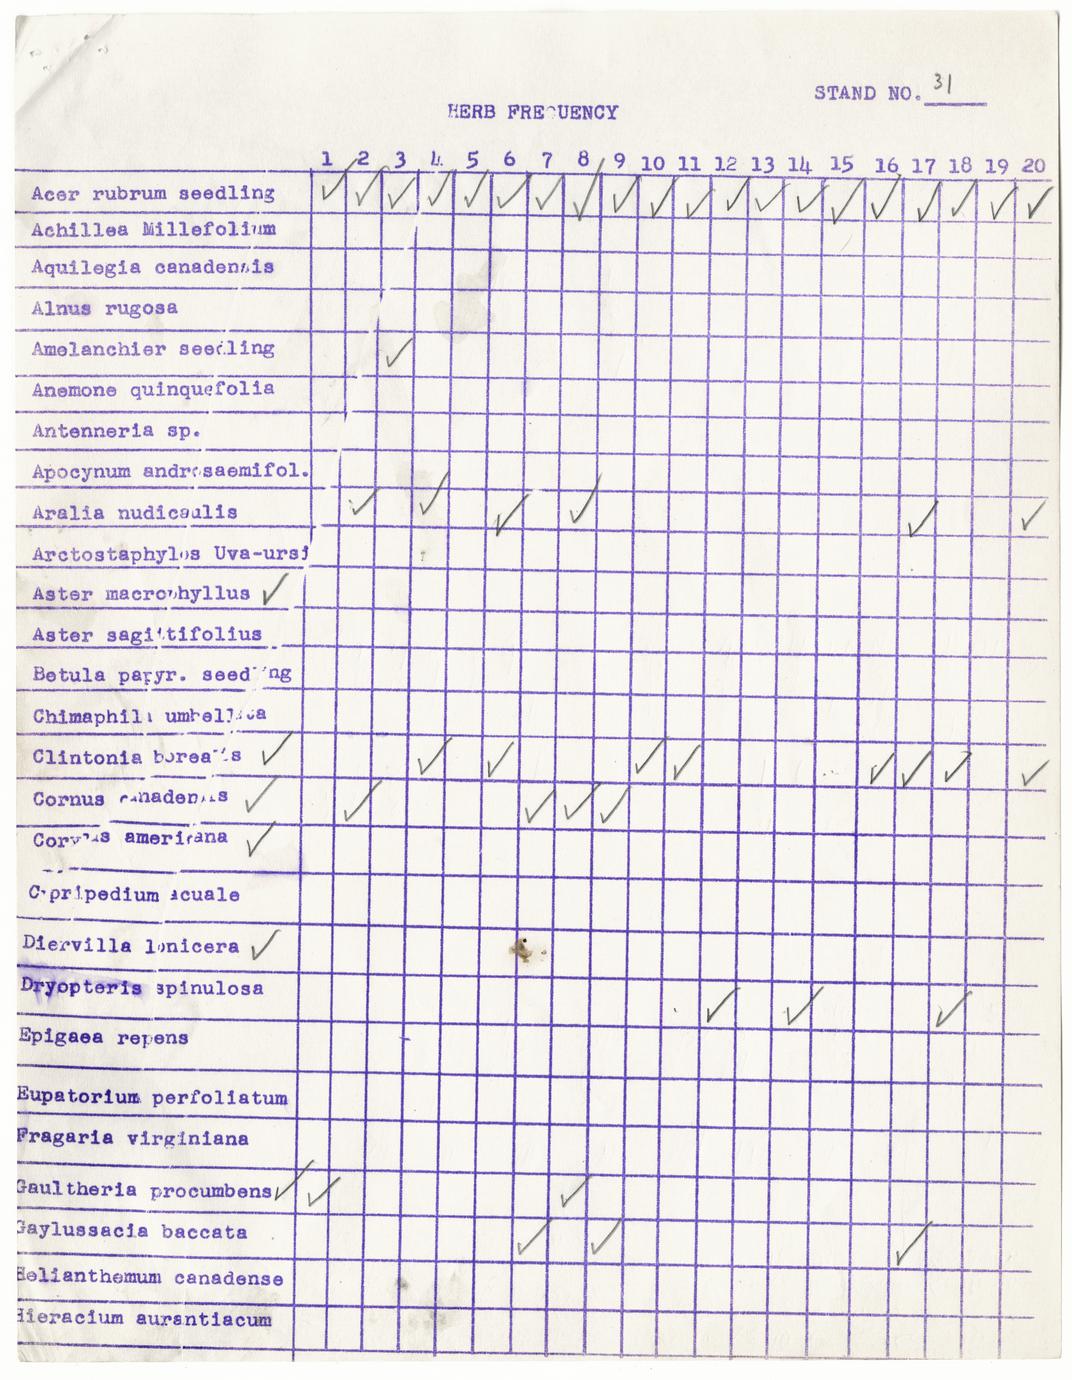 STAND NO. 31
HERB FREQUENCY
1 2 3 4 5 6 7 8 9 10 11 12 13 14 15 16 17 18 19 20
Acer rubrum seedling ✓ ✓ ✓ ✓ ✓ ✓ ✓ ✓ ✓ ✓ ✓ ✓ ✓ ✓ ✓ ✓ ✓ ✓ ✓ ✓
Achillea Millefolium
Aquilegia canadensis
Alnus rugosa
Amelanchier seedling ✓
Anemone quinquefolia
Antenneria sp.
Apocynum androsaemifol.
Aralia nudicaulis ✓ ✓ ✓ ✓ ✓ ✓
Arctostaphylos Uva-ursi
Aster macrophyllus ✓
Aster sagittifolius
Betula papyr. seedling
Chimaphila umbellata
Clintonia borealis ✓ ✓ ✓ ✓ ✓ ✓ ✓ ✓ ✓
Cornus canadensis ✓ ✓ ✓ ✓ ✓
Corylus americana ✓
Cypripedium acuale
Diervilla lonicera ✓
Dryopteris spinulosa ✓ ✓ ✓
Epigaea repens
Eupatorium perfoliatum
Fragaria virginiana
Gaultheria procumbens ✓ ✓ ✓
Gaylussacia baccata ✓ ✓ ✓
Helianthemum canadense
Hieracium aurantiacum